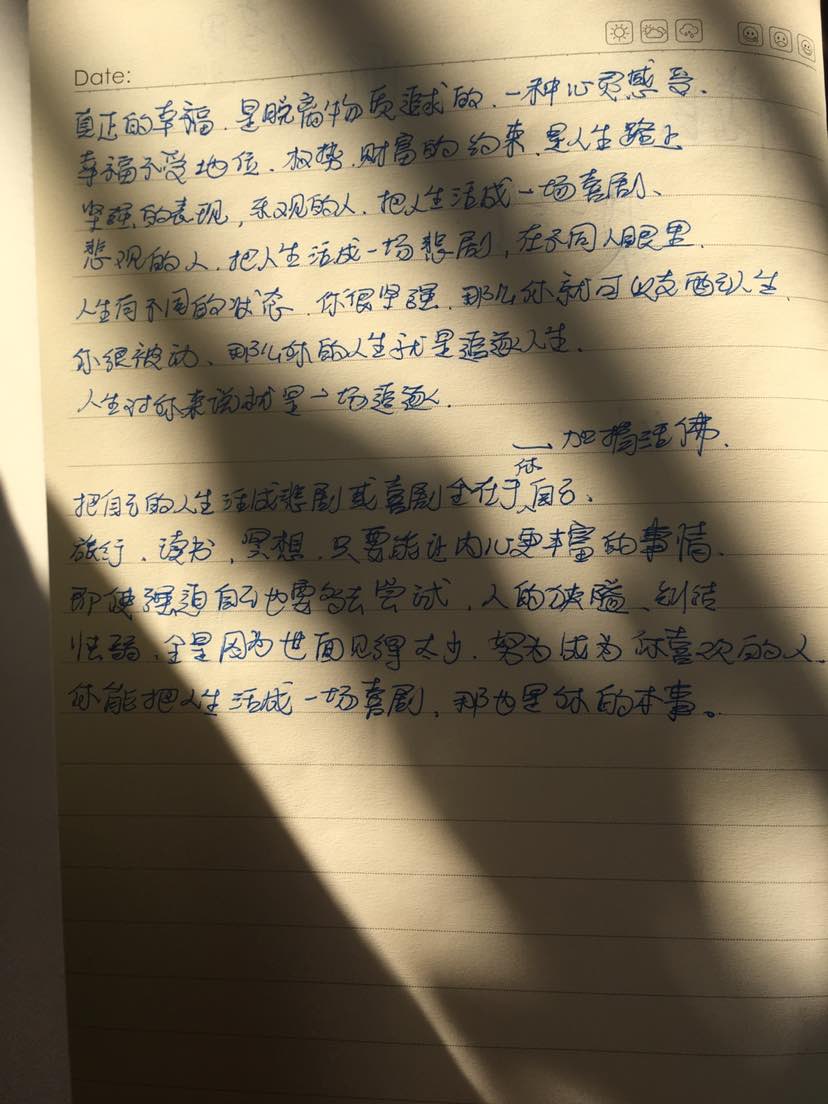 Date:
真正的幸福.是脱离物质追求的.一种心灵感受.
幸福不受地位.权势.财富的约束.是人生路上
坚强的表现,乐观的人.把人生活成一场喜剧、
悲观的人.把人生活成一场悲剧,在不同人眼里.
人生有不同的状态.你很坚强.那么你就可以支配人生.
你很被动、那么你的人生就是追逐人生.
人生对你来说就是一场追逐.
— 加措活佛.
把自己的人生活成悲剧或喜剧全在于你自己、
旅行.读书,冥想.只要能让内心更丰富的事情、
即使强迫自己也要去尝试,人的狭隘、纠结
怯弱、全是因为世面见得太少.努为成为你喜欢的人.
你能把人生活成一场喜剧,那也是你的本事。